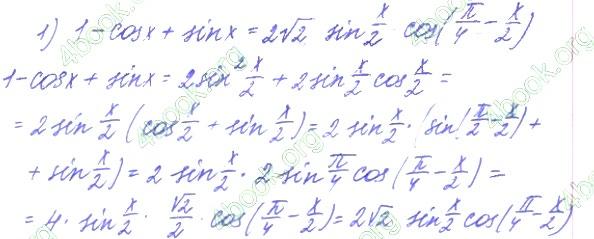 1) 1-cosx + sinx = 2√2 sin x/2 cos(π/4 - x/2)
1-cosx + sinx = 2sin² x/2 + 2sin x/2 cos x/2 =
= 2sin x/2 (cos x/2 + sin x/2) = 2 sin x/2 · (sin(π/2 - x/2) +
+ sin x/2) = 2 sin x/2 · 2 sin π/4 cos(π/4 - x/2) =
= 4 · sin x/2 · √2/2 · cos(π/4 - x/2) = 2√2 sin x/2 cos(π/4 - x/2)
4book.org